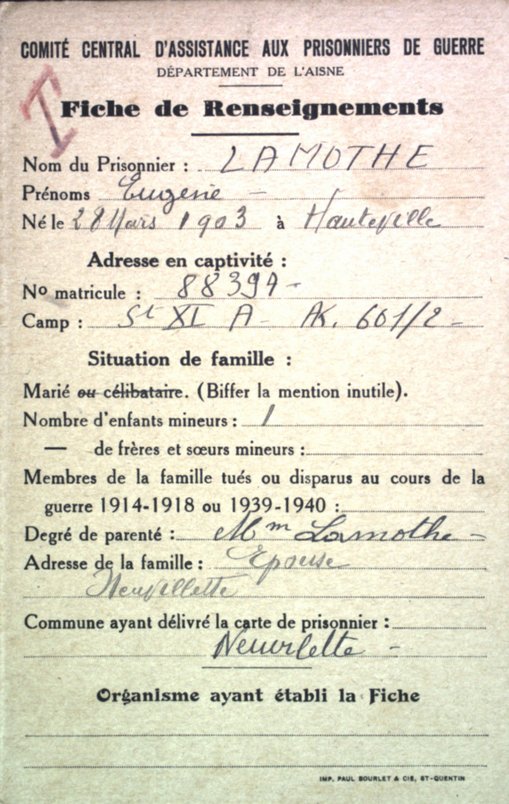 COMITÉ CENTRAL D'ASSISTANCE AUX PRISONNIERS DE GUERRE
DÉPARTEMENT DE L'AISNE
I
Fiche de Renseignements
Nom du Prisonnier : LAMOTHE
Prénoms Eugène -
Né le 28 Mars 1903 à Hauteville
Adresse en captivité :
No matricule : 88397 -
Camp : St XI A - AK. 601/2 -
Situation de famille :
Marié ou célibataire. (Biffer la mention inutile).
Nombre d'enfants mineurs : 1
— de frères et sœurs mineurs :
Membres de la famille tués ou disparus au cours de la
guerre 1914-1918 ou 1939-1940 :
Degré de parenté : Mm Lamothe -
Adresse de la famille : Epouse
Neuvillette
Commune ayant délivré la carte de prisonnier :
Neuvilette -
Organisme ayant établi la Fiche
IMP. PAUL BOURLET & CIE, ST-QUENTIN